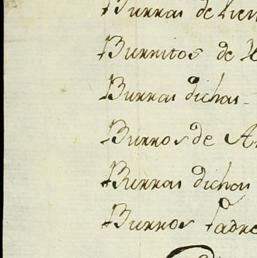 Burras de Vien
Burritos de
Burras dichas
Burros de A
Burras dichas
Burros Padre